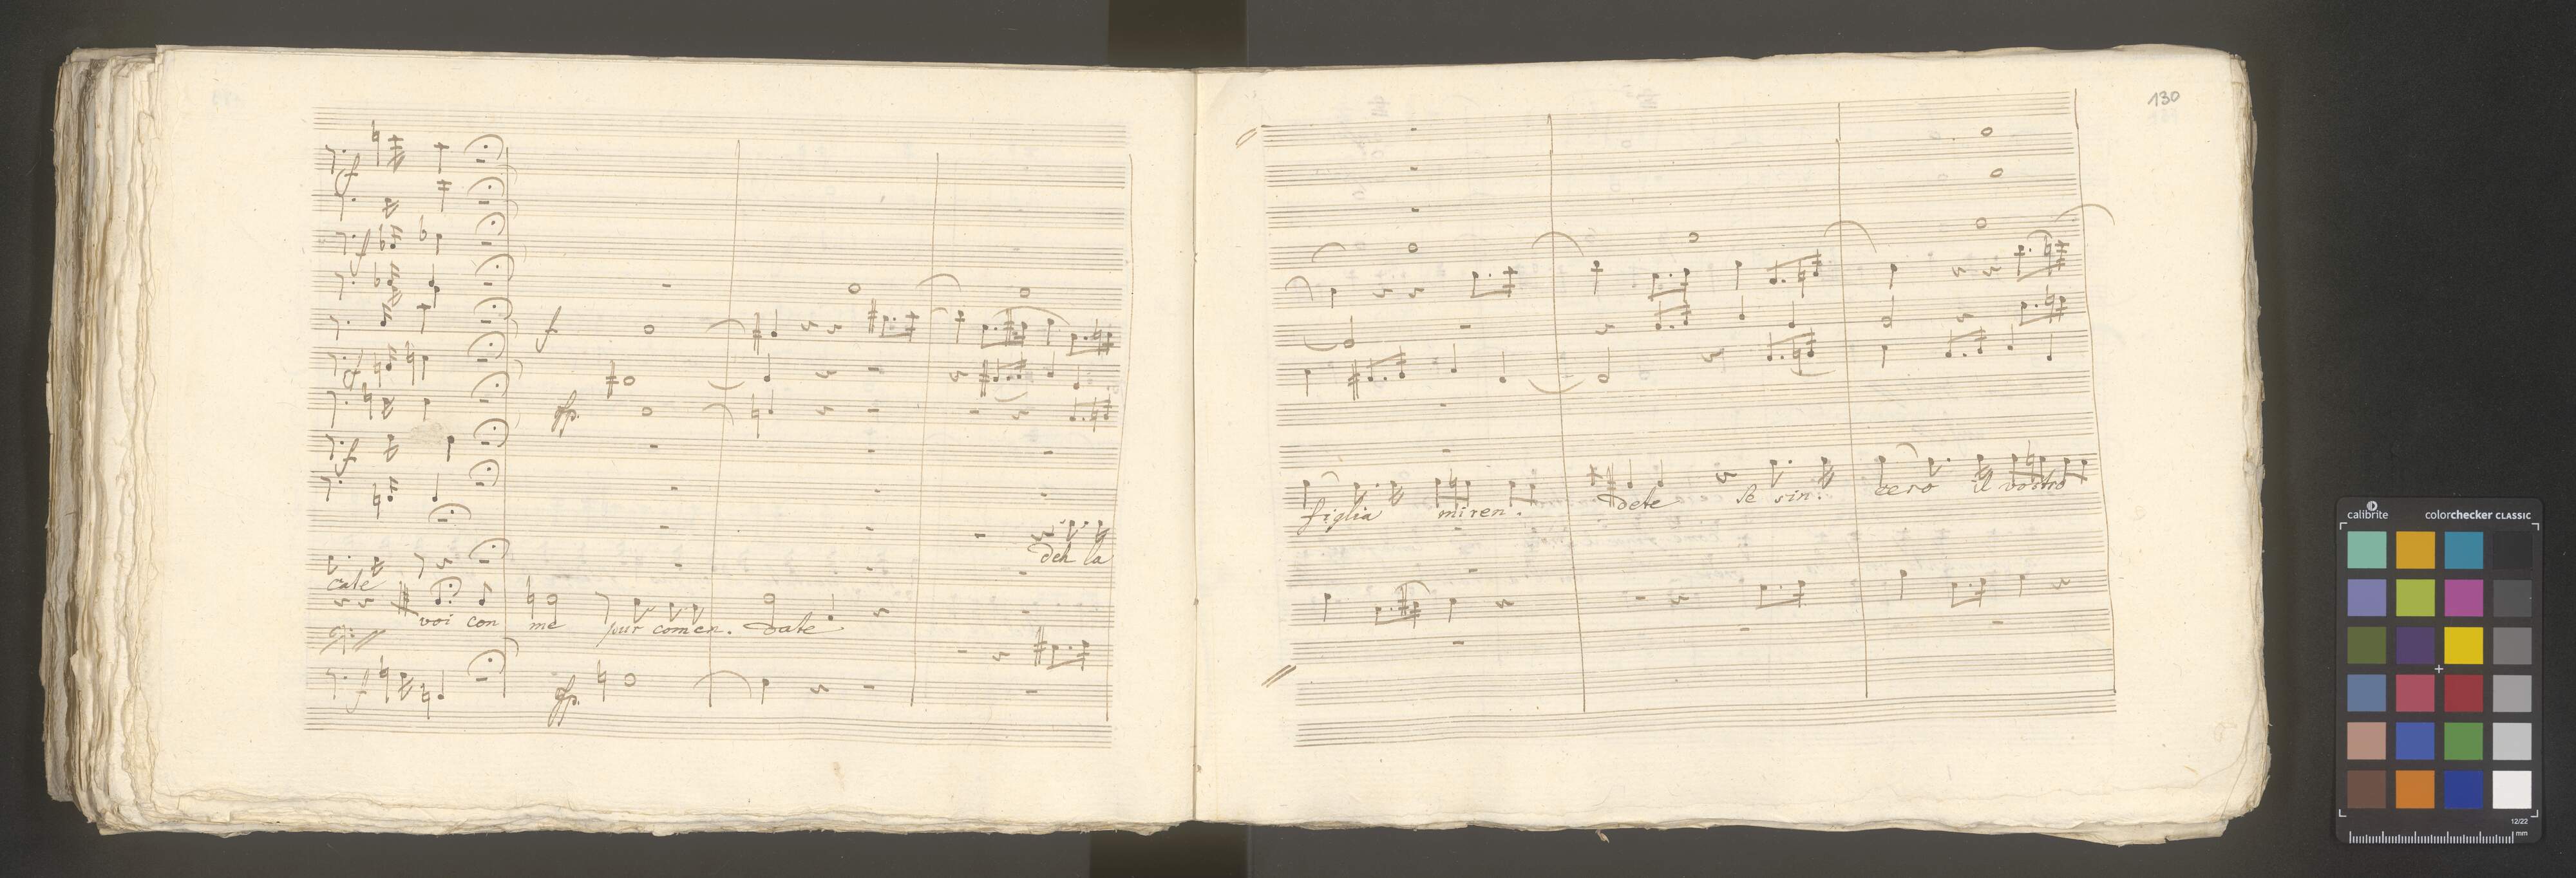 130
f
f
f
f
f
fp.
f
deh la
cate
voi con me pur comen. date
f
fp.
figlia mi ren. dete se sin. cero il vostro
calibrite colorchecker CLASSIC
12/22
mm